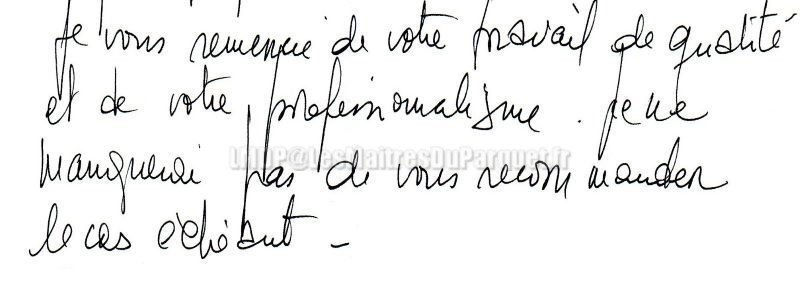 Je vous remercie de votre travail de qualité
et de votre professionnalisme. Je ne
manquerai pas de vous recommander
LMDP@LesMaitresDuParquet.fr
le cas échéant -